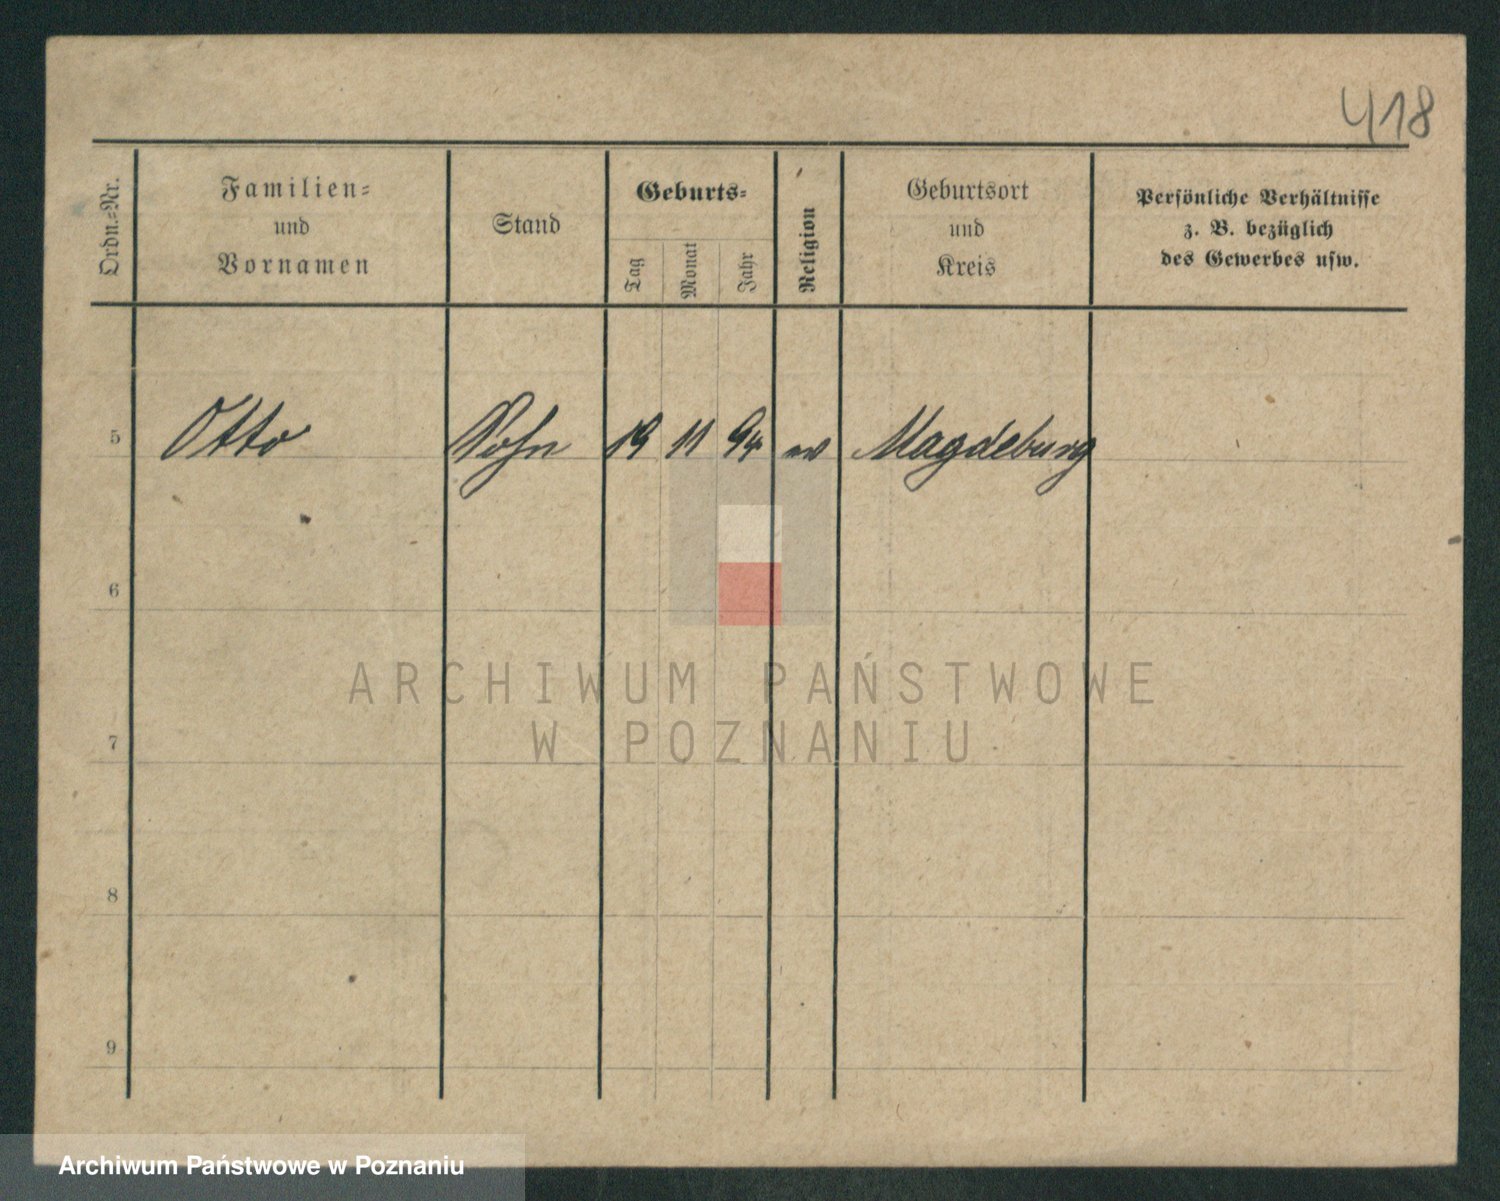 418
Ordn.=Nr.
Familien=
und
Vornamen
Stand
Geburts=
Tag
Monat
Jahr
Religion
Geburtsort
und
Kreis
Persönliche Verhältnisse
z. B. bezüglich
des Gewerbes usw.
5 Otto Sohn 19 11 94 ev Magdeburg
6
7
8
9
ARCHIWUM PAŃSTWOWE
W POZNANIU
Archiwum Państwowe w Poznaniu